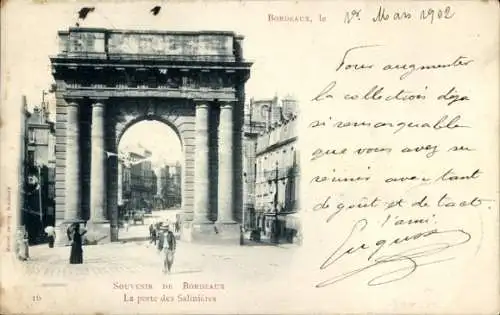 BORDEAUX, le 1er Mars 1902
Pour augmenter
la collection déja
si remarquable
que vous avez su
réunir avec tant
de goût et de tact.
l'ami
SOUVENIR DE BORDEAUX
La porte des Salinières
16